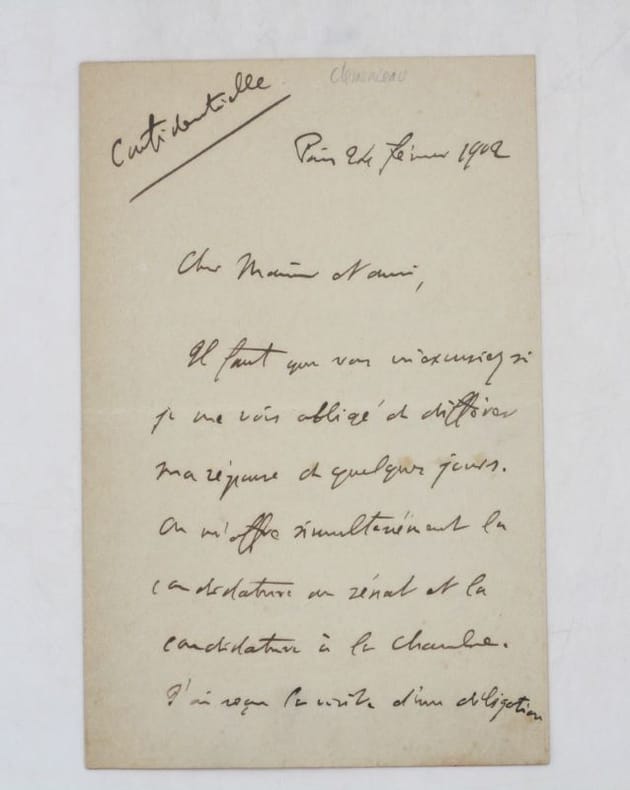 Clemenceau
Confidentielle
Paris 24 février 1902
Cher Maître et ami,
Il faut que vous m'excusiez si
je me vois obligé de différer
ma réponse de quelques jours.
On m'offre simultanément la
candidature au sénat et la
candidature à la chambre.
J'ai reçu la visite d'une délégation